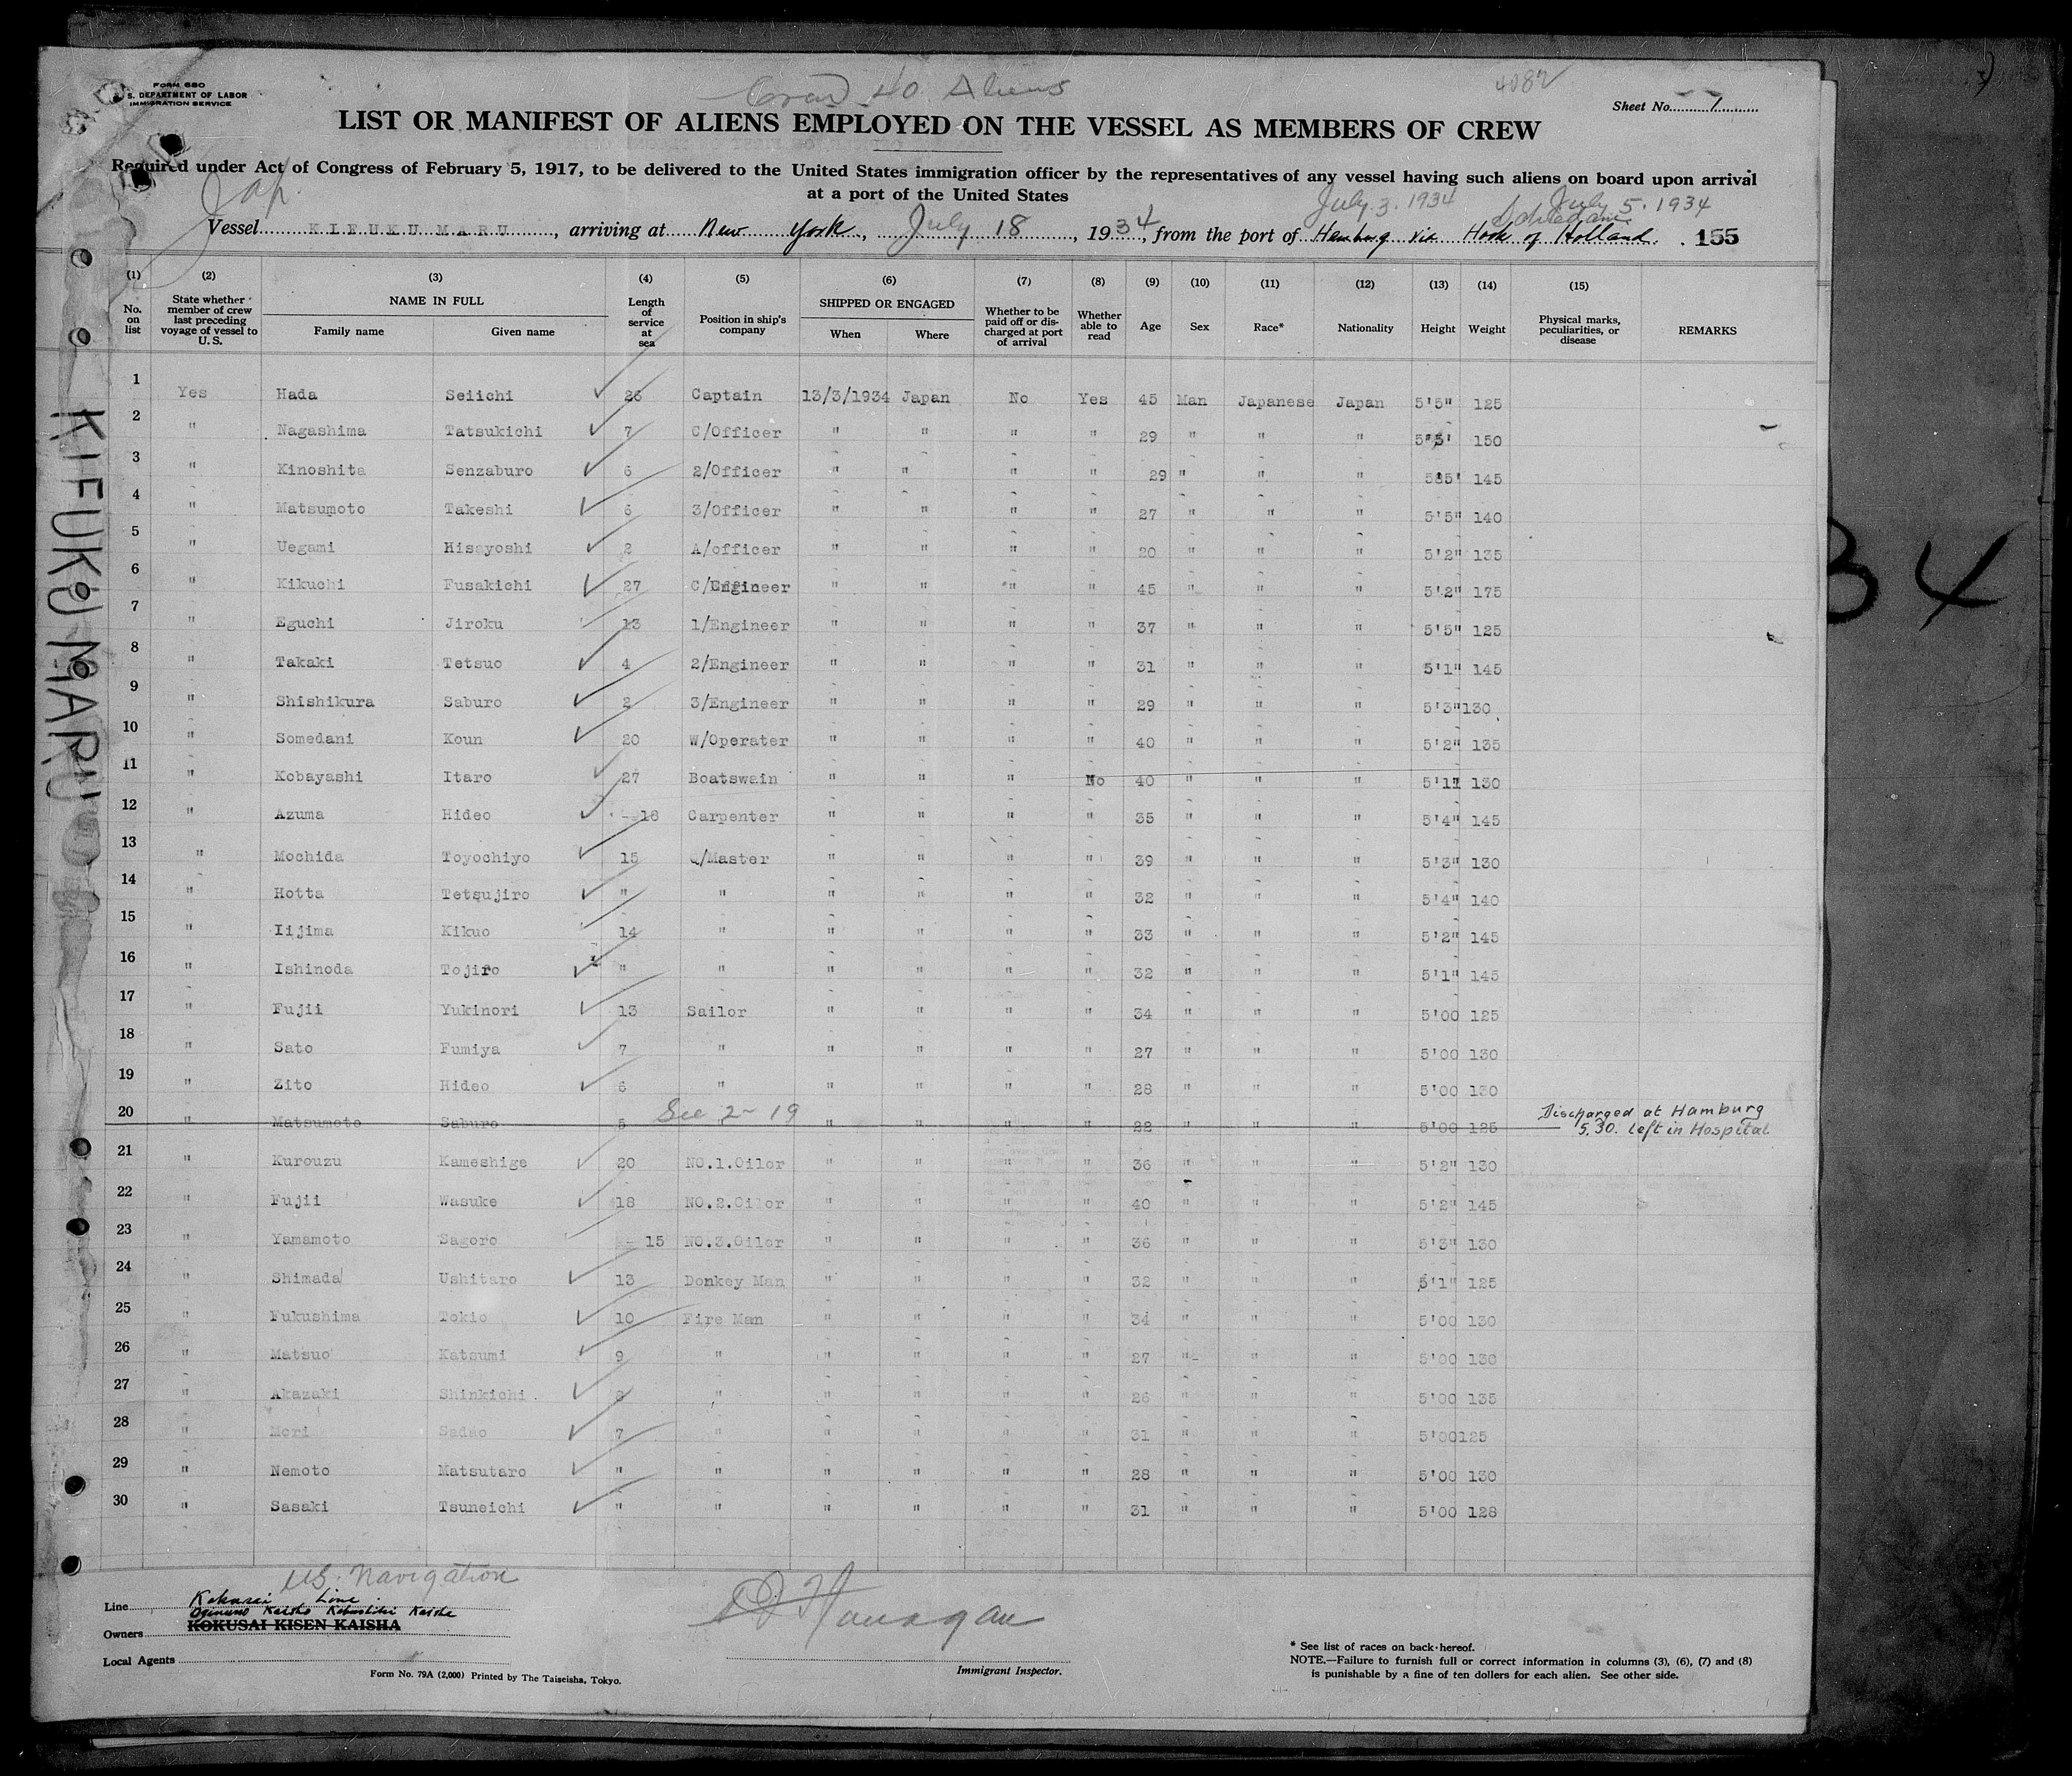 FORM 680
S. DEPARTMENT OF LABOR
IMMIGRATION SERVICE
40 Aliens
4082
Sheet No. 1
LIST OR MANIFEST OF ALIENS EMPLOYED ON THE VESSEL AS MEMBERS OF CREW
Required under Act of Congress of February 5, 1917, to be delivered to the United States immigration officer by the representatives of any vessel having such aliens on board upon arrival
at a port of the United States
Jap.
July 3. 1934 July 5. 1934
Schiedam
Vessel KIFUKU MARU, arriving at New York, July 18, 1934, from the port of Hamburg via Hook of Holland. 155
(1) (2) (3) (4) (5) (6) (7) (8) (9) (10) (11) (12) (13) (14) (15)
No. on list
State whether member of crew last preceding voyage of vessel to U. S.
NAME IN FULL
Family name Given name
Length of service at sea
Position in ship's company
SHIPPED OR ENGAGED
When Where
Whether to be paid off or discharged at port of arrival
Whether able to read
Age Sex Race* Nationality Height Weight
Physical marks, peculiarities, or disease
REMARKS
1 Yes Hada Seiichi 26 Captain 13/3/1934 Japan No Yes 45 Man Japanese Japan 5'5" 125
2 " Nagashima Tatsukichi 7 C/Officer " " " " 29 " " " 5'5' 150
3 " Kinoshita Senzaburo 6 2/Officer " " " " 29 " " " 585' 145
4 " Matsumoto Takeshi 6 3/Officer " " " " 27 " " " 5'5" 140
5 " Uegami Hisayoshi 2 A/officer " " " " 20 " " " 5'2" 135
6 " Kikuchi Fusakichi 27 C/Engineer " " " " 45 " " " 5'2" 175
7 " Eguchi Jiroku 13 1/Engineer " " " " 37 " " " 5'5" 125
8 " Takaki Tetsuo 4 2/Engineer " " " " 31 " " " 5'1" 145
9 " Shishikura Saburo 2 3/Engineer " " " " 29 " " " 5'3" 130
10 " Somedani Koun 20 W/Operater " " " " 40 " " " 5'2" 135
11 " Kobayashi Itaro 27 Boatswain " " " No 40 " " " 5'11 130
12 " Azuma Hideo 18 Carpenter " " " " 35 " " " 5'4" 145
13 " Mochida Toyochiyo 15 Q/Master " " " " 39 " " " 5'3" 130
14 " Hotta Tetsujiro " " " " " " 32 " " " 5'4" 140
15 " Iijima Kikuo 14 " " " " " 33 " " " 5'2" 145
16 " Ishinoda Tojiro " " " " " " 32 " " " 5'1" 145
17 " Fujii Yukinori 13 Sailor " " " " 34 " " " 5'00 125
18 " Sato Fumiya 7 " " " " " 27 " " " 5'00 130
19 " Zito Hideo 6 " " " " " 28 " " " 5'00 130
20 " Matsumoto Saburo 5 See 2-19 " " " " 22 " " " 5'00 125 Discharged at Hamburg
5.30. Left in Hospital
21 " Kurouzu Kameshige 20 NO.1.Oilor " " " " 36 " " " 5'2" 130
22 " Fujii Wasuke 18 NO.2.Oilor " " " " 40 " " " 5'2" 145
23 " Yamamoto Sagoro 15 NO.3.Oilor " " " " 36 " " " 5'3" 130
24 " Shimada Ushitaro 13 Donkey Man " " " " 32 " " " 5'1" 125
25 " Fukushima Tokio 10 Fire Man " " " " 34 " " " 5'00 130
26 " Matsuo Katsumi 9 " " " " " 27 " " " 5'00 130
27 " Akazaki Shinkichi 8 " " " " " 26 " " " 5'00 135
28 " Mori Sadao 7 " " " " " 31 " " " 5'00 125
29 " Nemoto Matsutaro " " " " " " 28 " " " 5'00 130
30 " Sasaki Tsuneichi " " " " " " 31 " " " 5'00 128
KIFUKU MARU
34
U.S. Navigation
Line Kokusai Line
Kaisha Kabushiki Kaisha
Owners KOKUSAI KISEN KAISHA
Local Agents
Form No. 79A (2,000) Printed by The Taiseisha, Tokyo.
Immigrant Inspector.
* See list of races on back hereof.
NOTE.—Failure to furnish full or correct information in columns (3), (6), (7) and (8)
is punishable by a fine of ten dollars for each alien. See other side.